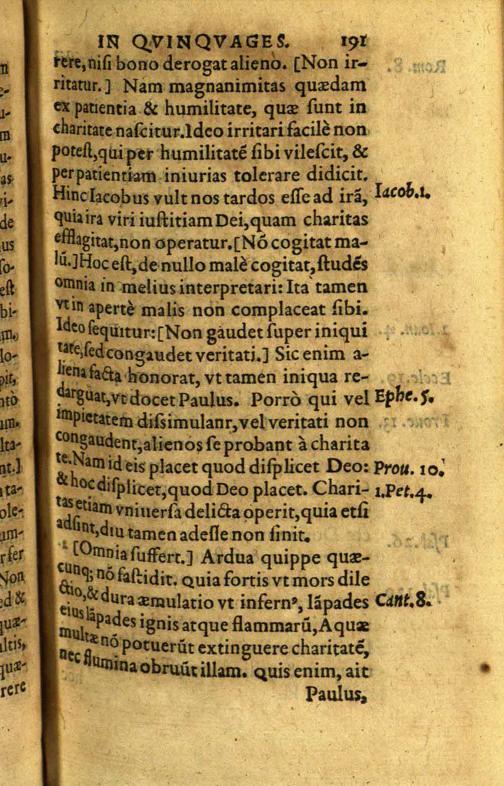 IN QVINQVAGES. 191
rere, nisi bono derogat alieno. [Non ir-
ritatur.] Nam magnanimitas quædam
ex patientia & humilitate, quæ sunt in
charitate nascitur. Ideo irritari facilè non
potest, qui per humilitatẽ sibi vilescit, &
per patientiam iniurias tolerare didicit.
Hinc Iacobus vult nos tardos esse ad irã, Iacob.1.
quia ira viri iustitiam Dei, quam charitas
efflagitat, non operatur. [Nõ cogitat ma-
lũ.] Hoc est, de nullo malè cogitat, studẽs
omnia in melius interpretari: Ita tamen
vt in apertè malis non complaceat sibi.
Ideo sequitur: [Non gaudet super iniqui
tate, sed congaudet veritati.] Sic enim a-
liena facta honorat, vt tamen iniqua re-
darguat, vt docet Paulus. Porrò qui vel Ephe.5.
impietatem dissimulanr, vel veritati non
congaudent, alienos se probant à charita
te. Nam id eis placet quod displicet Deo: Prou. 10.
& hoc displicet, quod Deo placet. Chari- 1.Pet.4.
tas etiam vniuersa delicta operit, quia etsi
adsint, diu tamen adesse non sinit.
[Omnia suffert.] Ardua quippe quæ-
cunq; nõ fastidit. Quia fortis vt mors dile
ctio, & dura æmulatio vt infernꝰ, lãpades Cant.8.
eius lãpades ignis atque flammarũ, Aquæ
multæ nõ potuerũt extinguere charitatẽ,
nec flumina obruũt illam. Quis enim, ait
Paulus,